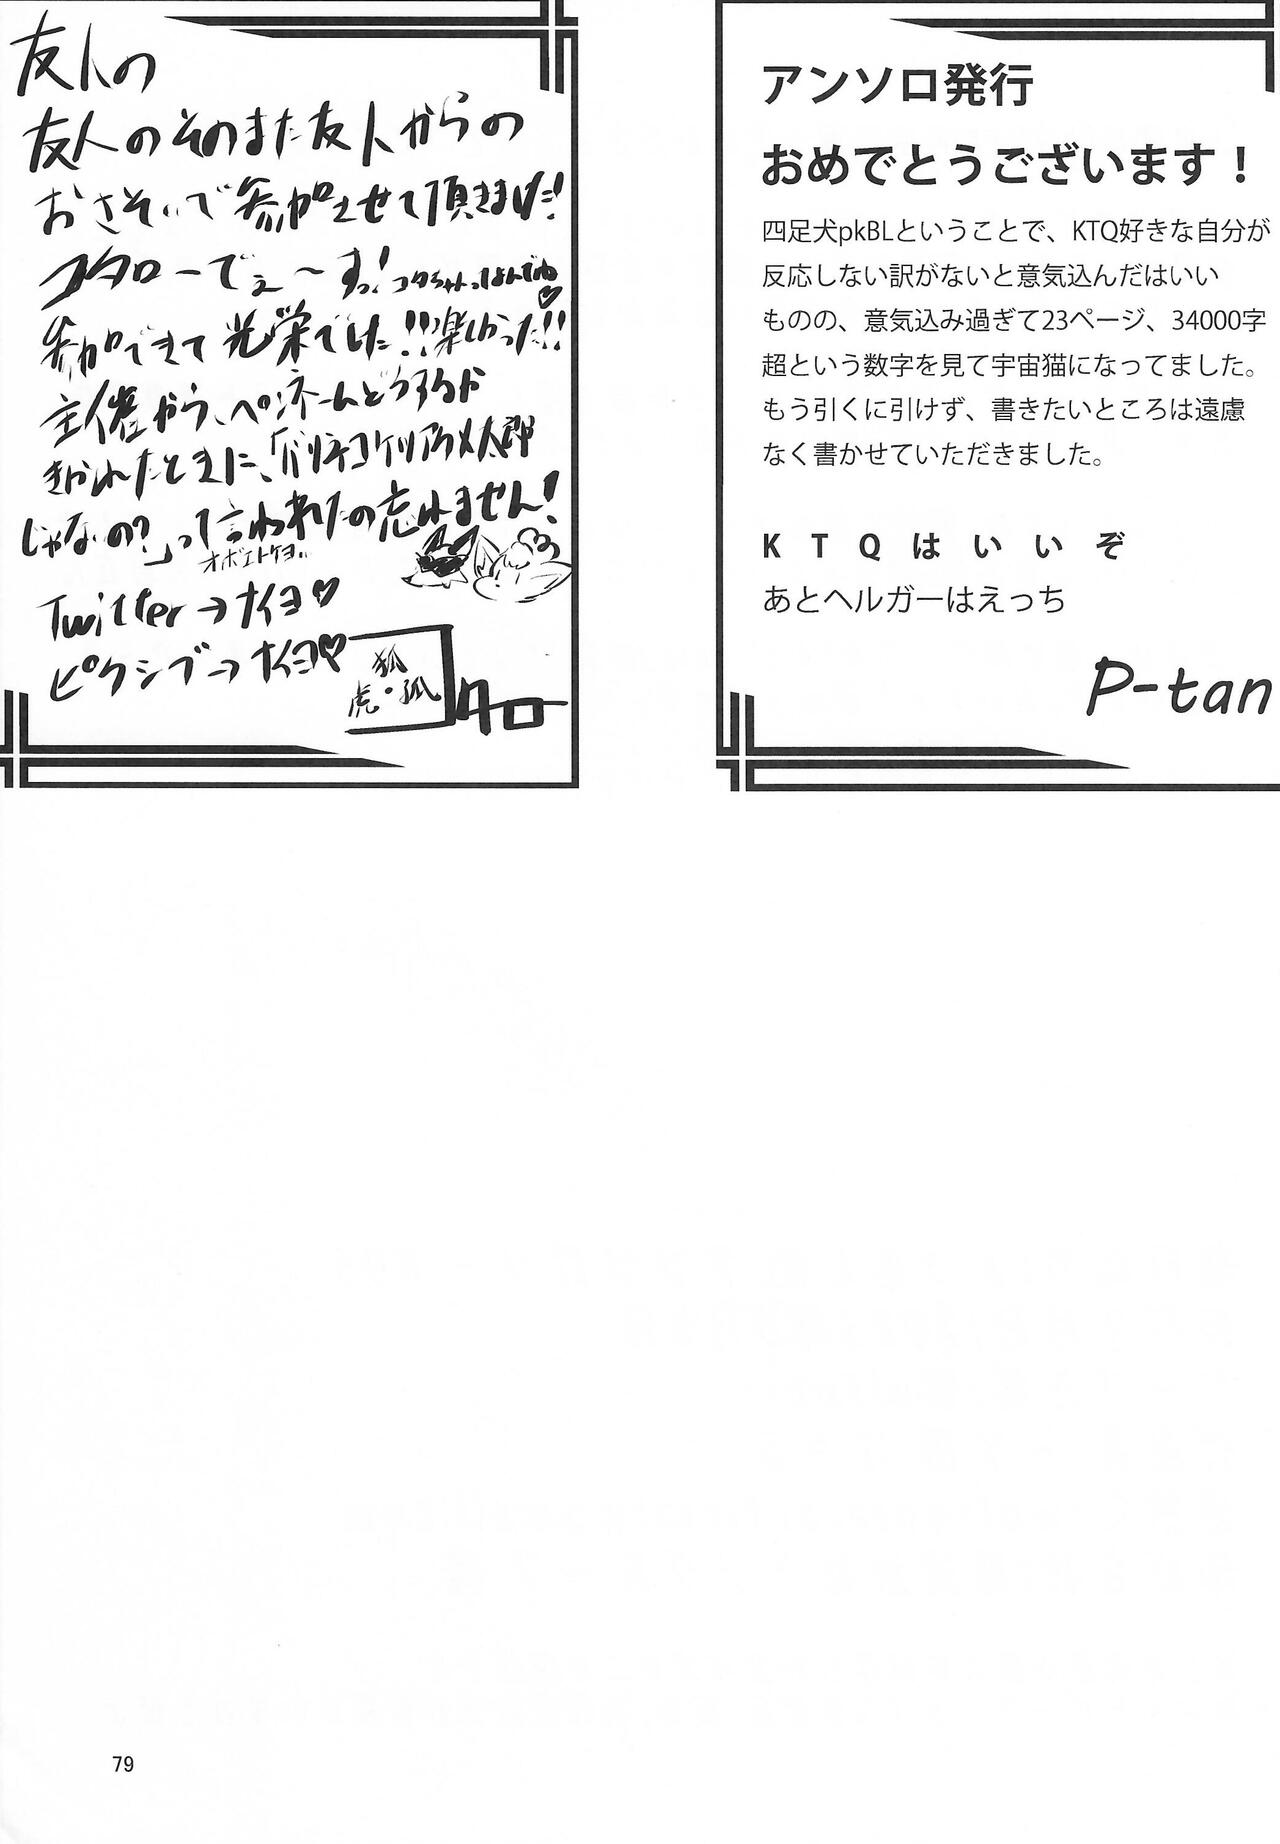 友人の
友人のそのまた友人からの
おさそいで参加させて頂きました!
コタローでぇ〜すっ! コタちゃんってよんでね♡
参加できて光栄でした!!楽しかった!!
主催から、ペンネームどうするか
きかれたときに、「バリネコケツアクメ太郎
じゃないの?」って言われたの忘れません!
オボエトケヨ…
Twitter→ナイヨ♡
ピクシブ→ナイヨ♡
狐
虎・狐
アンソロ発行
おめでとうございます！
四足犬pkBLということで、KTQ好きな自分が
反応しない訳がないと意気込んだはいい
ものの、意気込み過ぎて23ページ、34000字
超という数字を見て宇宙猫になってました。
もう引くに引けず、書きたいところは遠慮
なく書かせていただきました。
KTQはいいぞ
あとヘルガーはえっち
P-tan
79